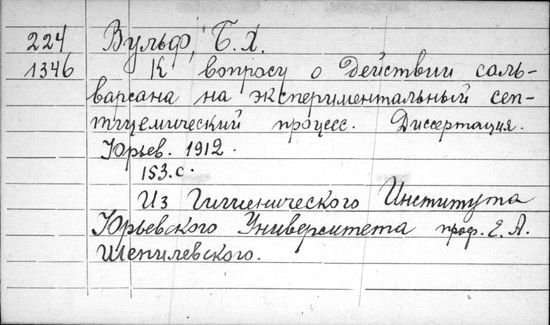 224 Вульф, Б. Х.
1346 К вопросу о действии саль-
варсана на экспериментальный сеп-
тицемический процесс. Диссертация.
Юрьев. 1912.
153.с.
Из Гигиенического Института
Юрьевского Университета проф. Е. А.
Шепилевского.